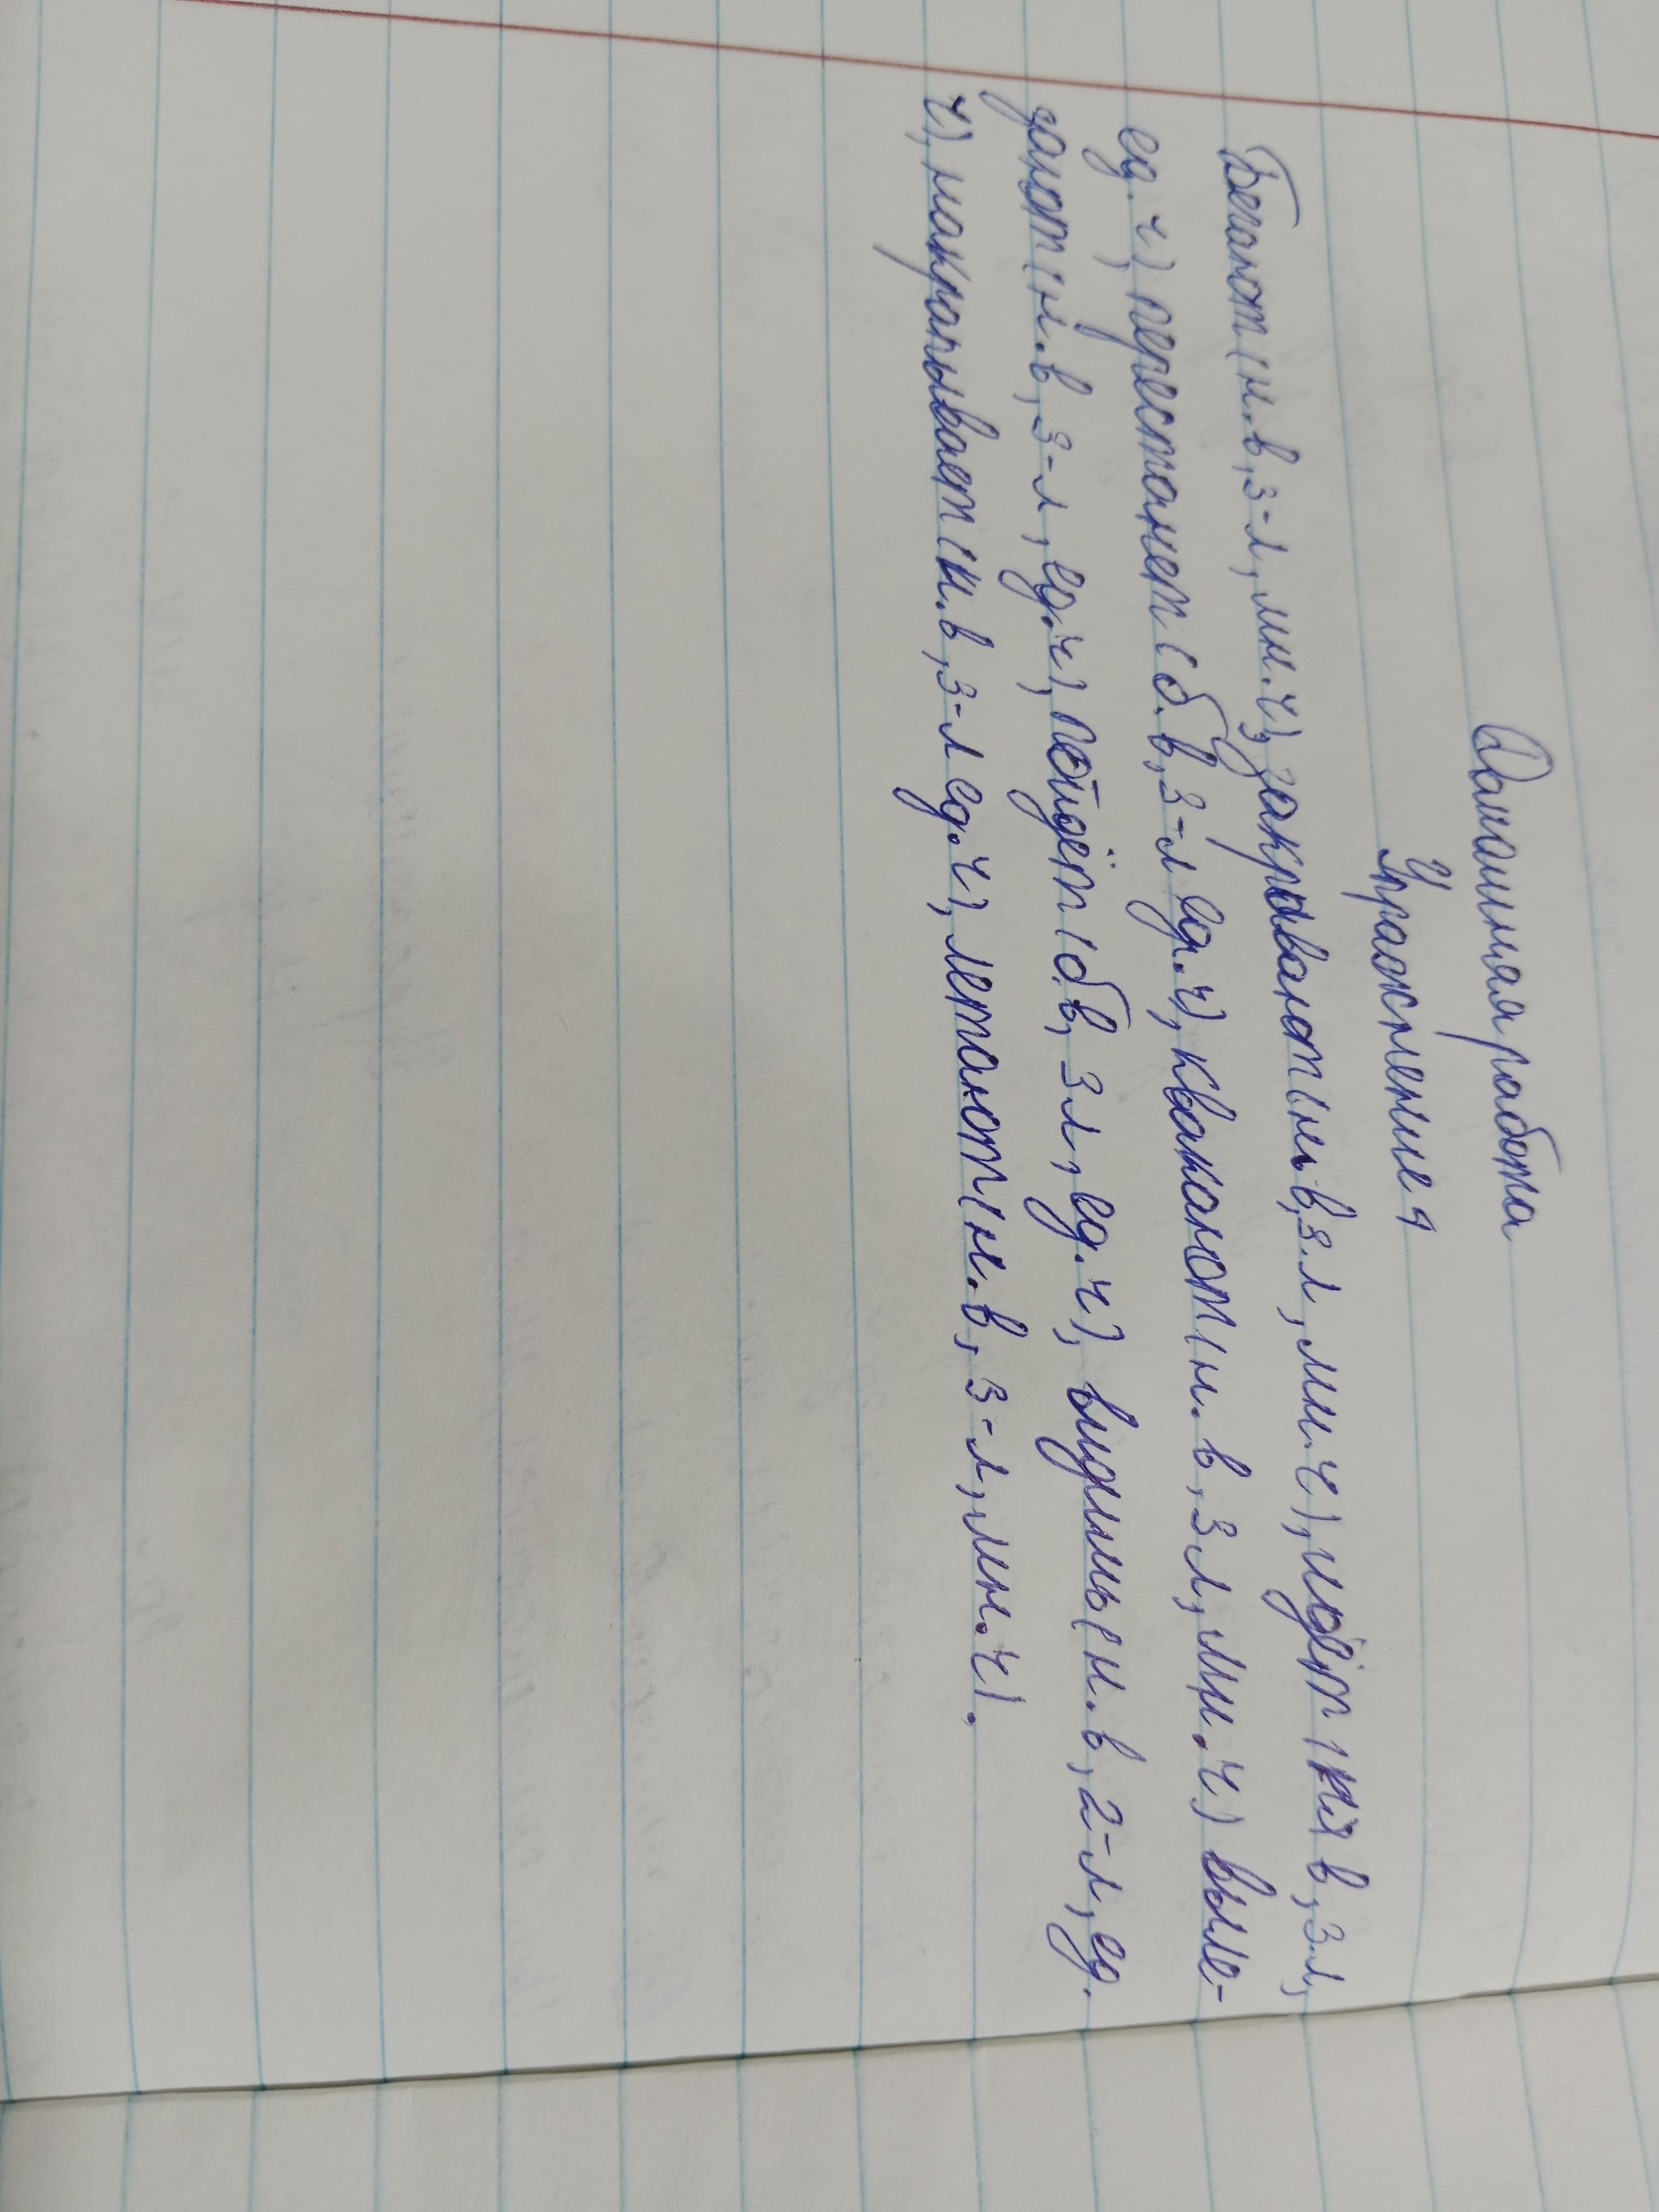 Домашняя работа
Упражнение 4
Бегают (н.в, 3-л, мн.ч), закрывают (н.в, 3.л, мн.ч), идёт (н.в, 3л,
ед.ч), перестанет (б.в, 3-л ед.ч), квакают (н.в, 3л, мн.ч) выле-
зают (н.в, 3-л, ед.ч), пойдёт (б.в, 3л, ед.ч), видишь (н.в, 2-л, ед.
ч), накрапывает (н.в, 3-л ед.ч), летают (н.в, 3-л, мн.ч).